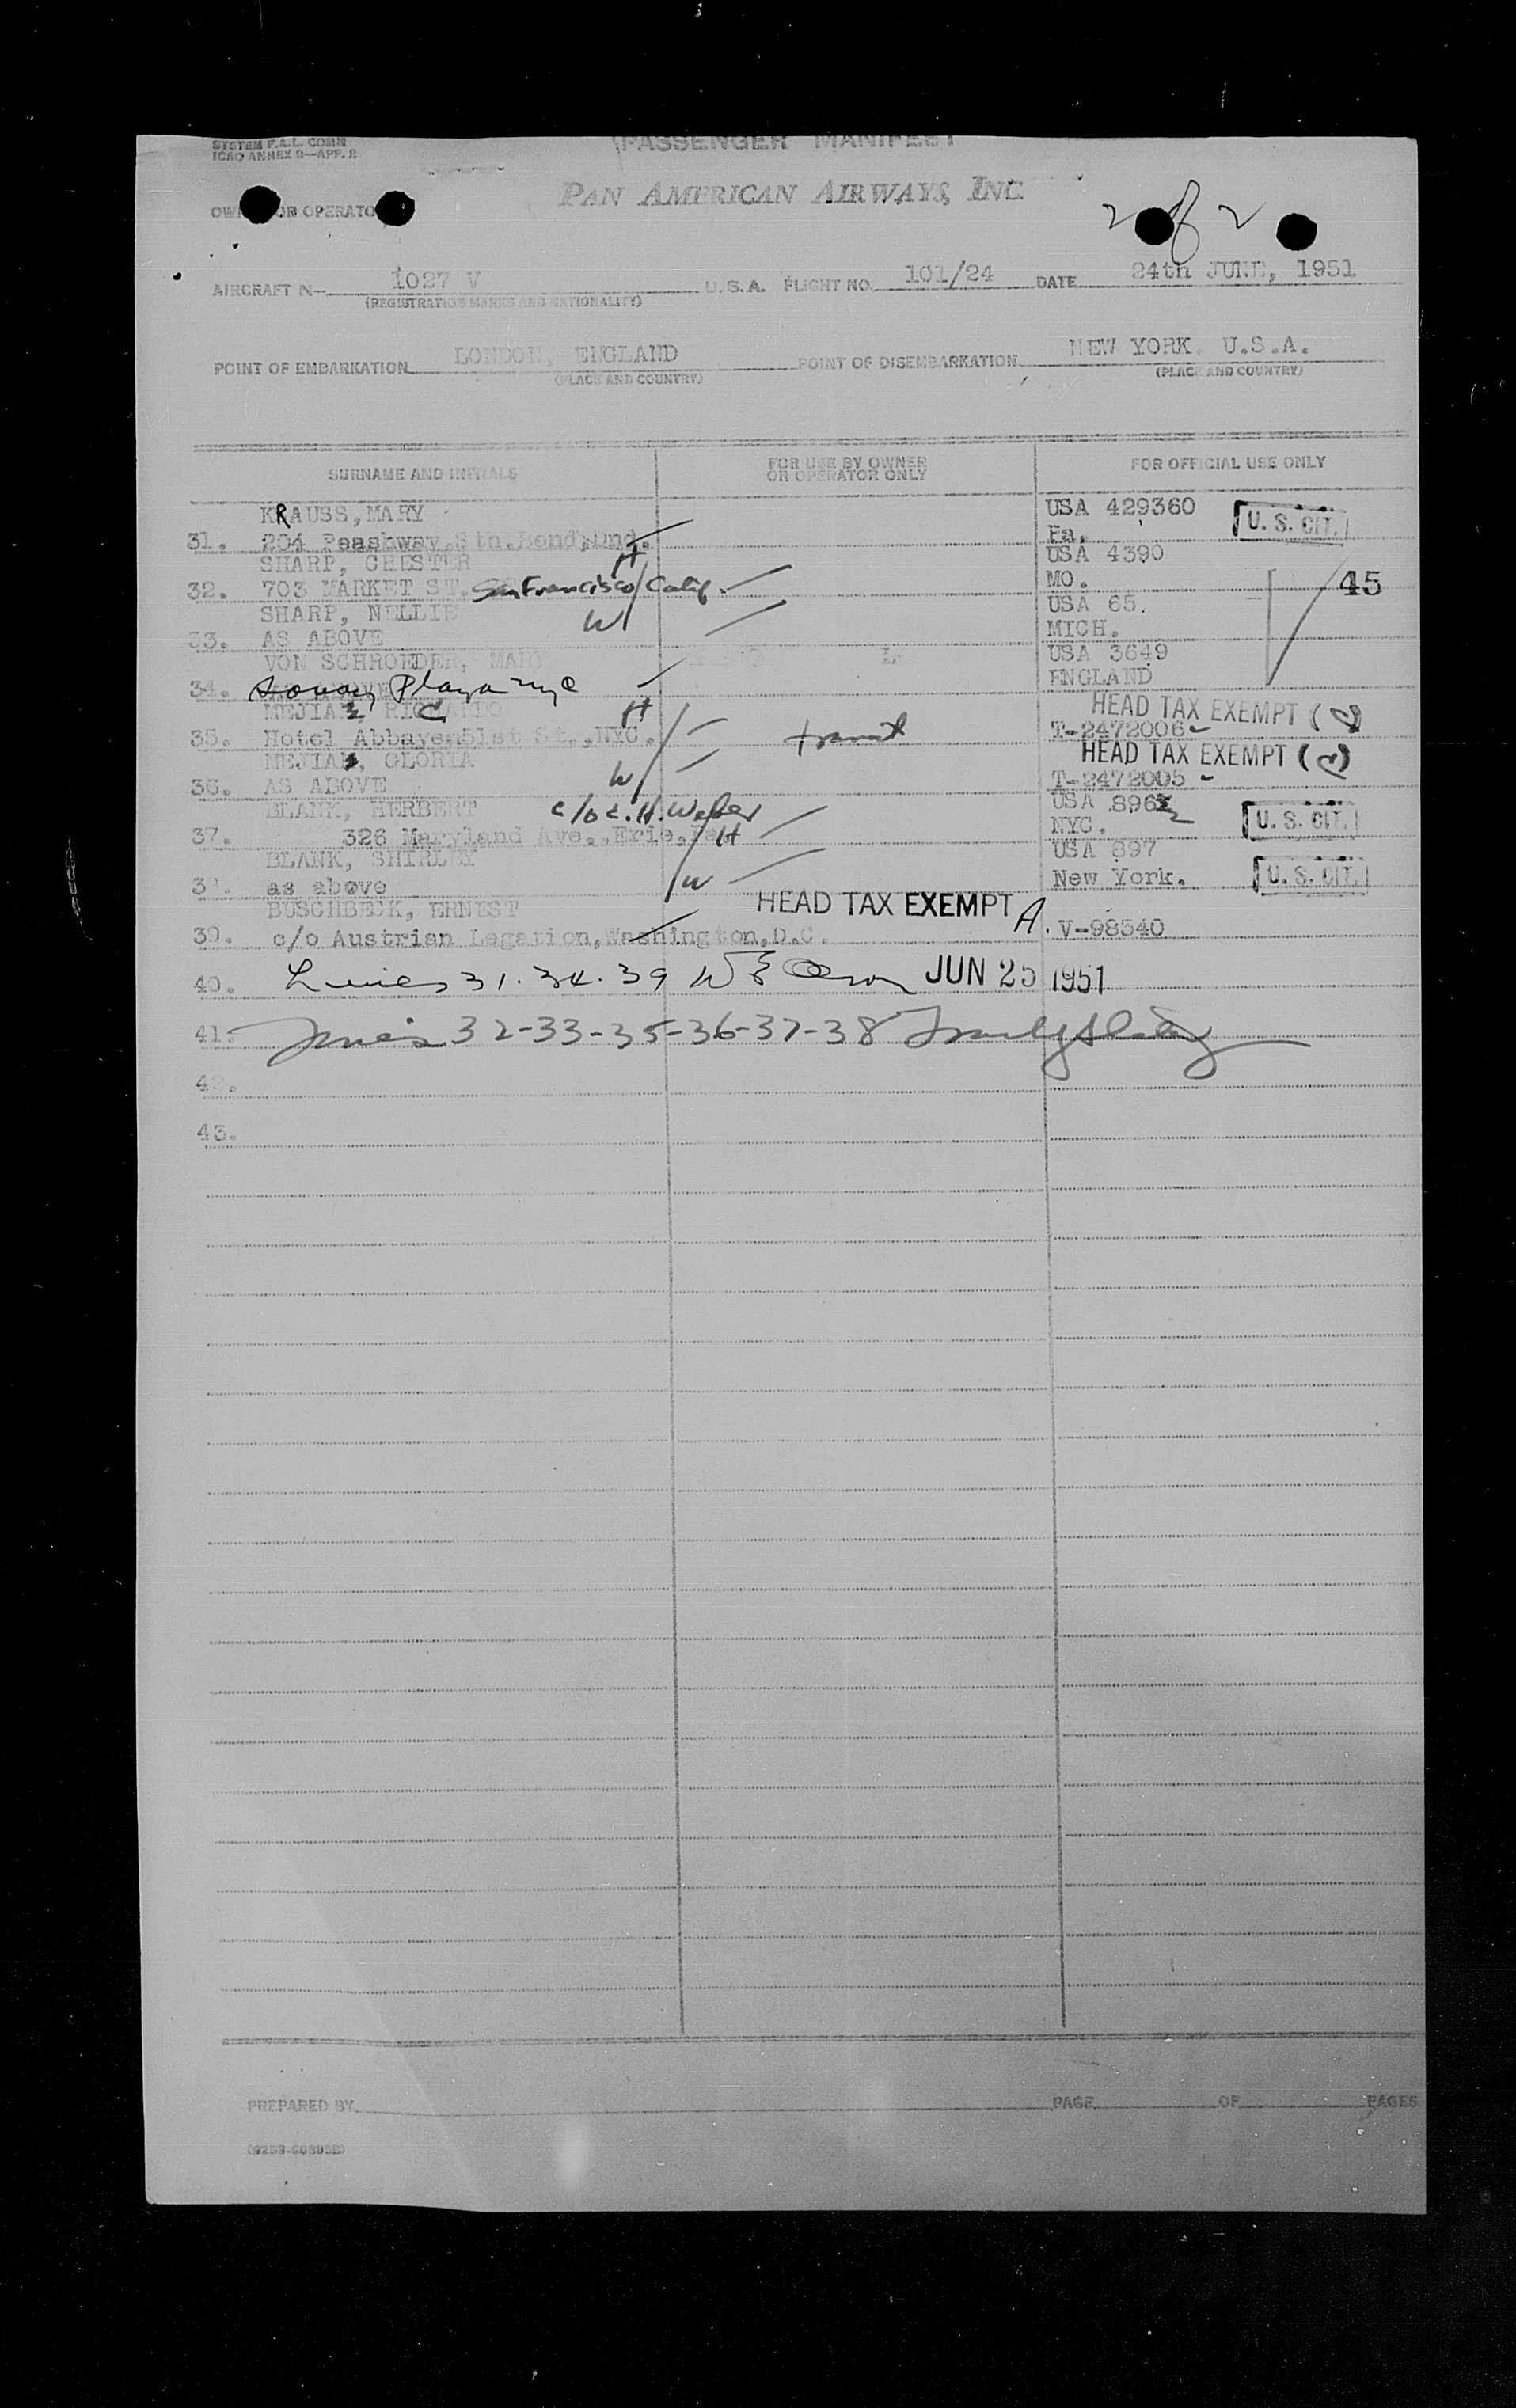 SYSTEM F.A.L. COMM
ICAO ANNEX 9—APP. 2
PASSENGER MANIFEST
OWNER OR OPERATOR
PAN AMERICAN AIRWAYS, INC.
2 of 2
AIRCRAFT N— 1027 V U.S.A. FLIGHT NO. 101/24 DATE 24th JUNE, 1951
(REGISTRATION MARKS AND NATIONALITY)
POINT OF EMBARKATION LONDON, ENGLAND POINT OF DISEMBARKATION NEW YORK. U.S.A.
(PLACE AND COUNTRY) (PLACE AND COUNTRY)
SURNAME AND INITIALS FOR USE BY OWNER OR OPERATOR ONLY FOR OFFICIAL USE ONLY
KRAUSS, MARY USA 429360 U. S. CIT.
31. 204 Peashway, Sth. Bend, Ind. Pa.
SHARP, CHESTER H USA 4390
32. 703 MARKET ST. San Francisco Calif. MO. 45
SHARP, NELLIE W USA 65.
33. AS ABOVE MICH.
VON SCHROEDER, MARY USA 3649
34. Plaza nyc ENGLAND
MEJIA, RICARDO C H HEAD TAX EXEMPT
35. Hotel Abbaye 51st St., NYC. transit T-2472006
MEJIA, GLORIA HEAD TAX EXEMPT
36. AS ABOVE W T-2472005
BLANK, HERBERT c/o C. H. Weber USA 896
37. 326 Maryland Ave., Erie, Pa H NYC. U. S. CIT.
BLANK, SHIRLEY USA 897
38. as above W New York. U. S. CIT.
BUSCHBECK, ERNEST HEAD TAX EXEMPT A.
39. c/o Austrian Legation, Washington, D.C. V-98540
40. Lines 31. 34. 39 JUN 25 1951
41. Lines 32-33-35-36-37-38
42.
43.
PREPARED BY PAGE OF PAGES